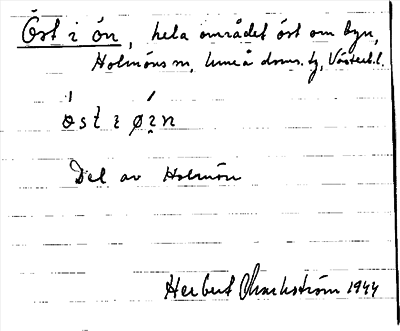 Öst i ön, hela området öst om byn,
Holmöns sn, Umeå doms. tg, Västerb. l.
öst i øɪn
Del av Holmön
Herbert Markström 1944